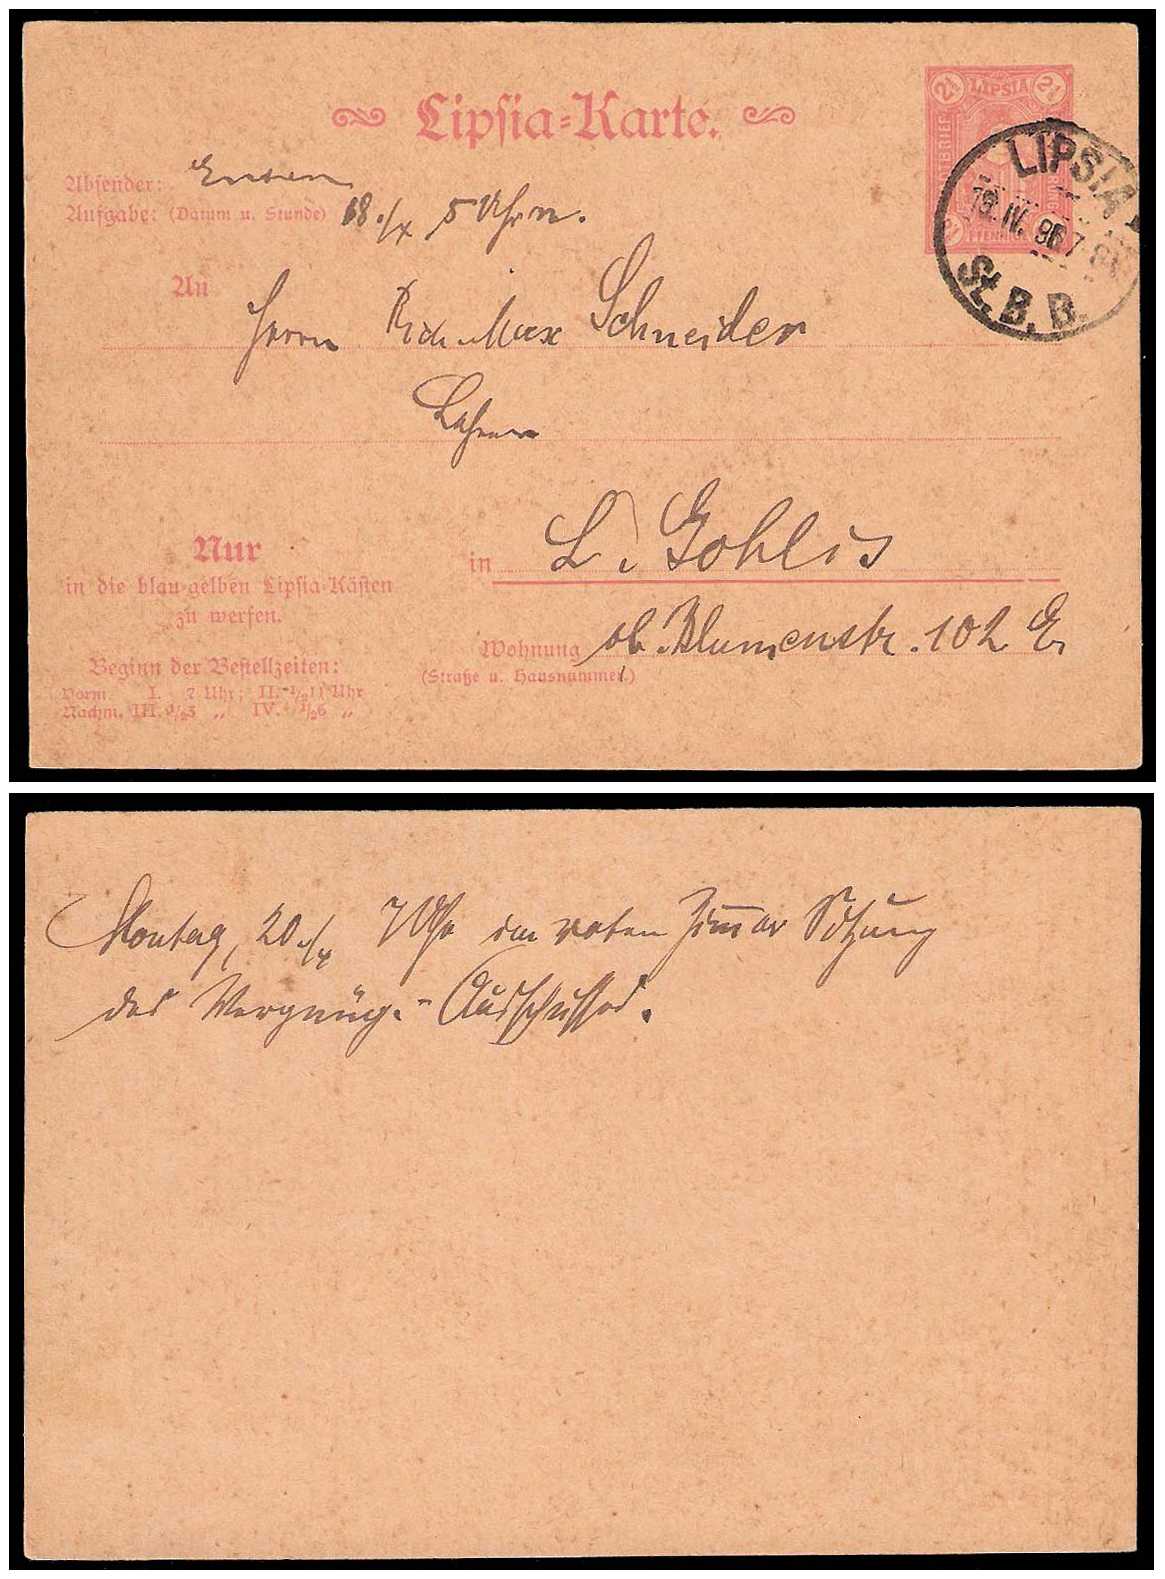 Lipsia-Karte.
2½ LIPSIA 2½
Absender:
Aufgabe: (Datum u. Stunde) 18./4 5 Uhr n.
LIPSIA
19. IV. 96 7
St. B. B.
An
Herrn Rich. Max Schneider
Lehrer
in L. Gohlis
Wohnung ob. Blumenstr. 10
(Straße u. Hausnummer.)
Nur
in die blau-gelben Lipsia-Kästen
zu werfen.
Beginn der Bestellzeiten:
Vorm. I. 7 Uhr; II. ½11 Uhr
Nachm. III. ½3 „ IV. ½6 „
Montag, 20./4 7 Uhr im roten Zimmer Sitzung
des Vergnüg.-Ausschusses.